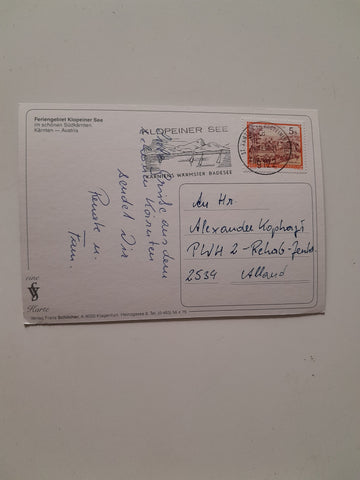 Feriengebiet Klopeiner See
im schönen Südkärnten
Kärnten — Austria
KLOPEINER SEE
KÄRNTENS WÄRMSTER BADESEE
5
Liebe Grüße aus dem
schönen Kärnten
sendet Dir
Renate u.
Fam.
An Hr.
Alexander
PWH 2 - Rehab-Zentr.
2534 Alland
eine
Karte
Verlag Franz Schilcher, A-9020 Klagenfurt